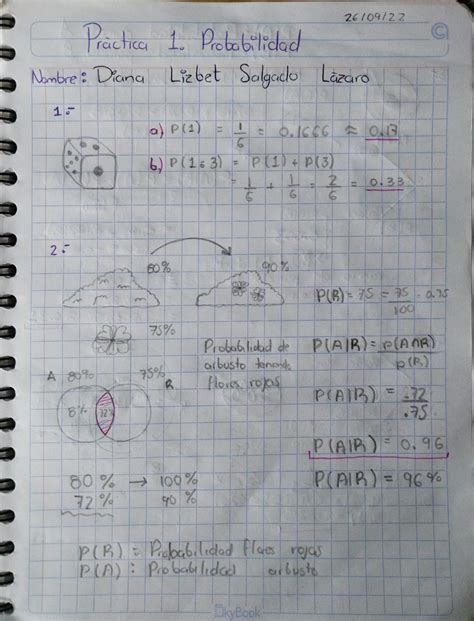 26/09/22
Práctica 1. Probabilidad
Nombre: Diana Lizbet Salgado Lázaro
1.-
a) P(1) = 1/6 = 0.1666 ≈ 0.17
b) P(1 ó 3) = P(1) + P(3)
= 1/6 + 1/6 = 2/6 = 0.33
2.-
80% 90%
P(R) = 75 = 75/100 = 0.75
75%
Probabilidad de
arbusto teniendo
flores rojas
P(A|R) = P(A∩R)/P(R)
A 80% 75% R
8% 72%
P(A|R) = .72/.75
P(A|R) = 0.96
80% → 100%
72% 90%
P(A|R) = 96%
P(R) = Probabilidad flores rojas
P(A) = Probabilidad arbusto
SkyBook